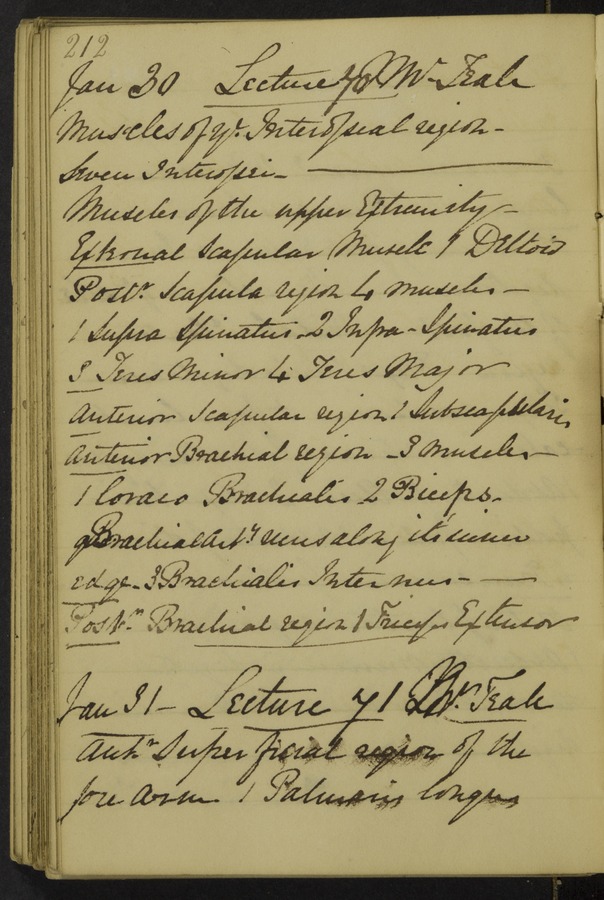 212
Jan 30 Lecture 70 Mr Teale
Muscles of ye. Interosseal region -
Seven Interossei -
Muscles of the upper Extremity -
External Scapular Muscle 1 Deltoid
Postr. Scapula region 4 muscles -
1 Supra Spinatus - 2 Infra - Spinatus
3 Teres Minor 4 Teres Major
Anterior Scapular region 1 Subscapularis
Anterior Brachial region - 3 muscles -
1 Coraco Brachialis 2 Biceps -
Brachial Arty runs along its inner
edge - 3 Brachialis Internus -
Postr. Brachial region 1 Triceps Extensor
Jan 31 - Lecture 71 Mr. Teale
Antr Superficial region of the
fore arm 1 Palmaris longus